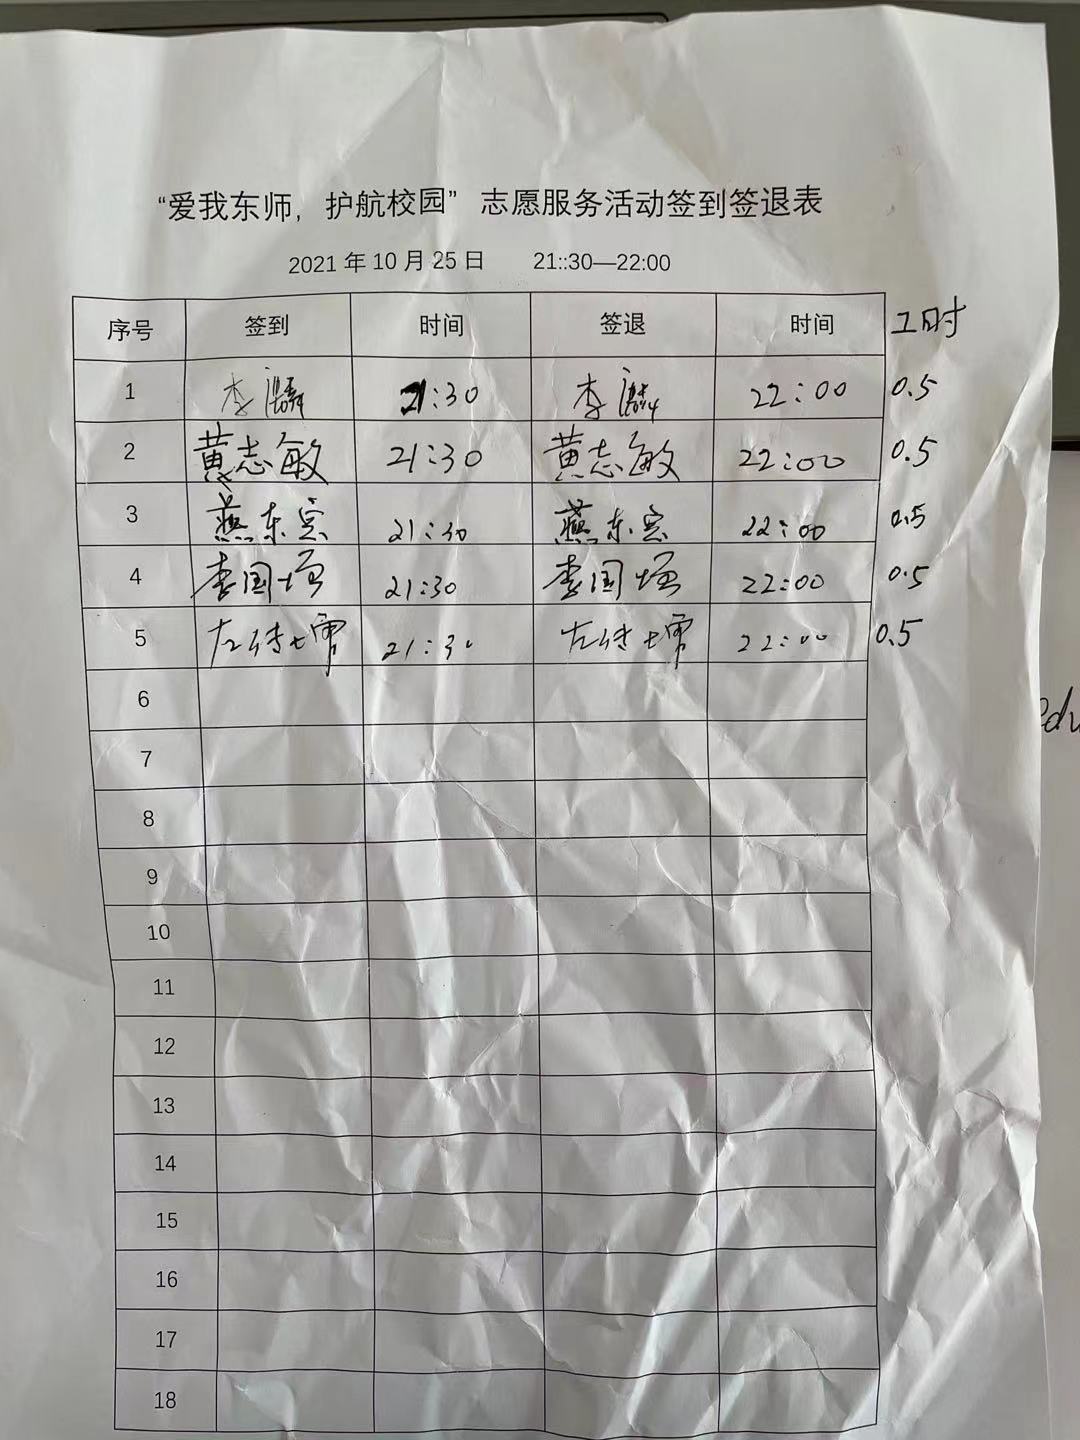 “爱我东师，护航校园” 志愿服务活动签到签退表
2021 年 10 月 25 日 21::30—22:00
序号 签到 时间 签退 时间 工时
1 李麟 21:30 李麟 22:00 0.5
2 黄志敏 21:30 黄志敏 22:00 0.5
3 燕东宾 21:30 燕东宾 22:00 0.5
4 李国垣 21:30 李国垣 22:00 0.5
5 21:30 22:00 0.5
6
7
8
9
10
11
12
13
14
15
16
17
18
edu